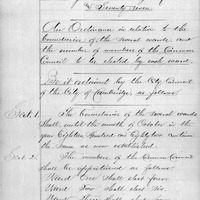 & Seventy seven
An Ordinance in relation to the
boundaries of the several wards, and
the number of members of the Common
Council to be elected by each ward.
Be it ordained by the City Council
of the City of Cambridge, as
follows:
Sect. 1. The boundaries of the several wards
shall, until the month of October in the
year Eighteen Hundred and Eighty, remain
the same as now established.
Sect. 2. The members of the Common Council
shall be apportioned as follows:
Ward One shall elect four
Ward Two shall elect six
Ward Three shall elect four